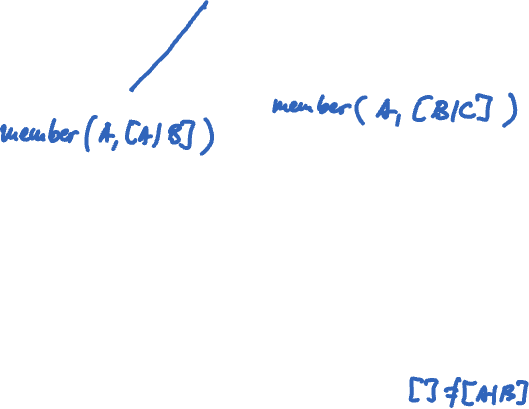 member(A, [B|C])
member(A, [A|B])
[] ≠ [A|B]